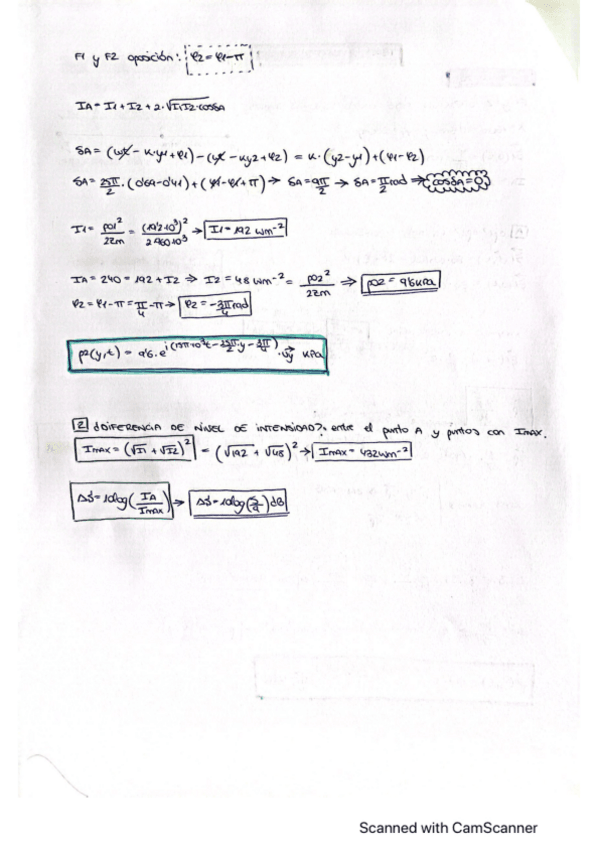 F1 y F2 oposición: φ2 = φ1 - π
IA = I1 + I2 + 2·√I1I2·cosδA
δA = (ωt - K·y1 + φ1) - (ωt - Ky2 + φ2) = K·(y2 - y1) + (φ1 - φ2)
δA = 25π/2 · (0'69 - 0'41) + (φ1 - φ1 + π) → δA = 9π/2 → δA = π/2 rad ⇒ cosδA = 0
I1 = p01²/2Zm = (19'2·10³)²/2·960·10³ → I1 = 192 Wm⁻²
IA = 240 = 192 + I2 ⇒ I2 = 48 Wm⁻² = p02²/2Zm ⇒ p02 = 9'6 KPa
φ2 = φ1 - π = π/4 - π → φ2 = -3π/4 rad
p2(y,t) = 9'6 · e^i( t - 25π/2 y - 3π/4) · uy KPa
2 ¿DIFERENCIA DE NIVEL DE INTENSIDAD?: entre el punto A y puntos con Imax.
Imax = (√I1 + √I2)² = (√192 + √48)² → Imax = 432 Wm⁻²
ΔS = 10log(IA/Imax) → ΔS = 10log(5/9) dB
Scanned with CamScanner